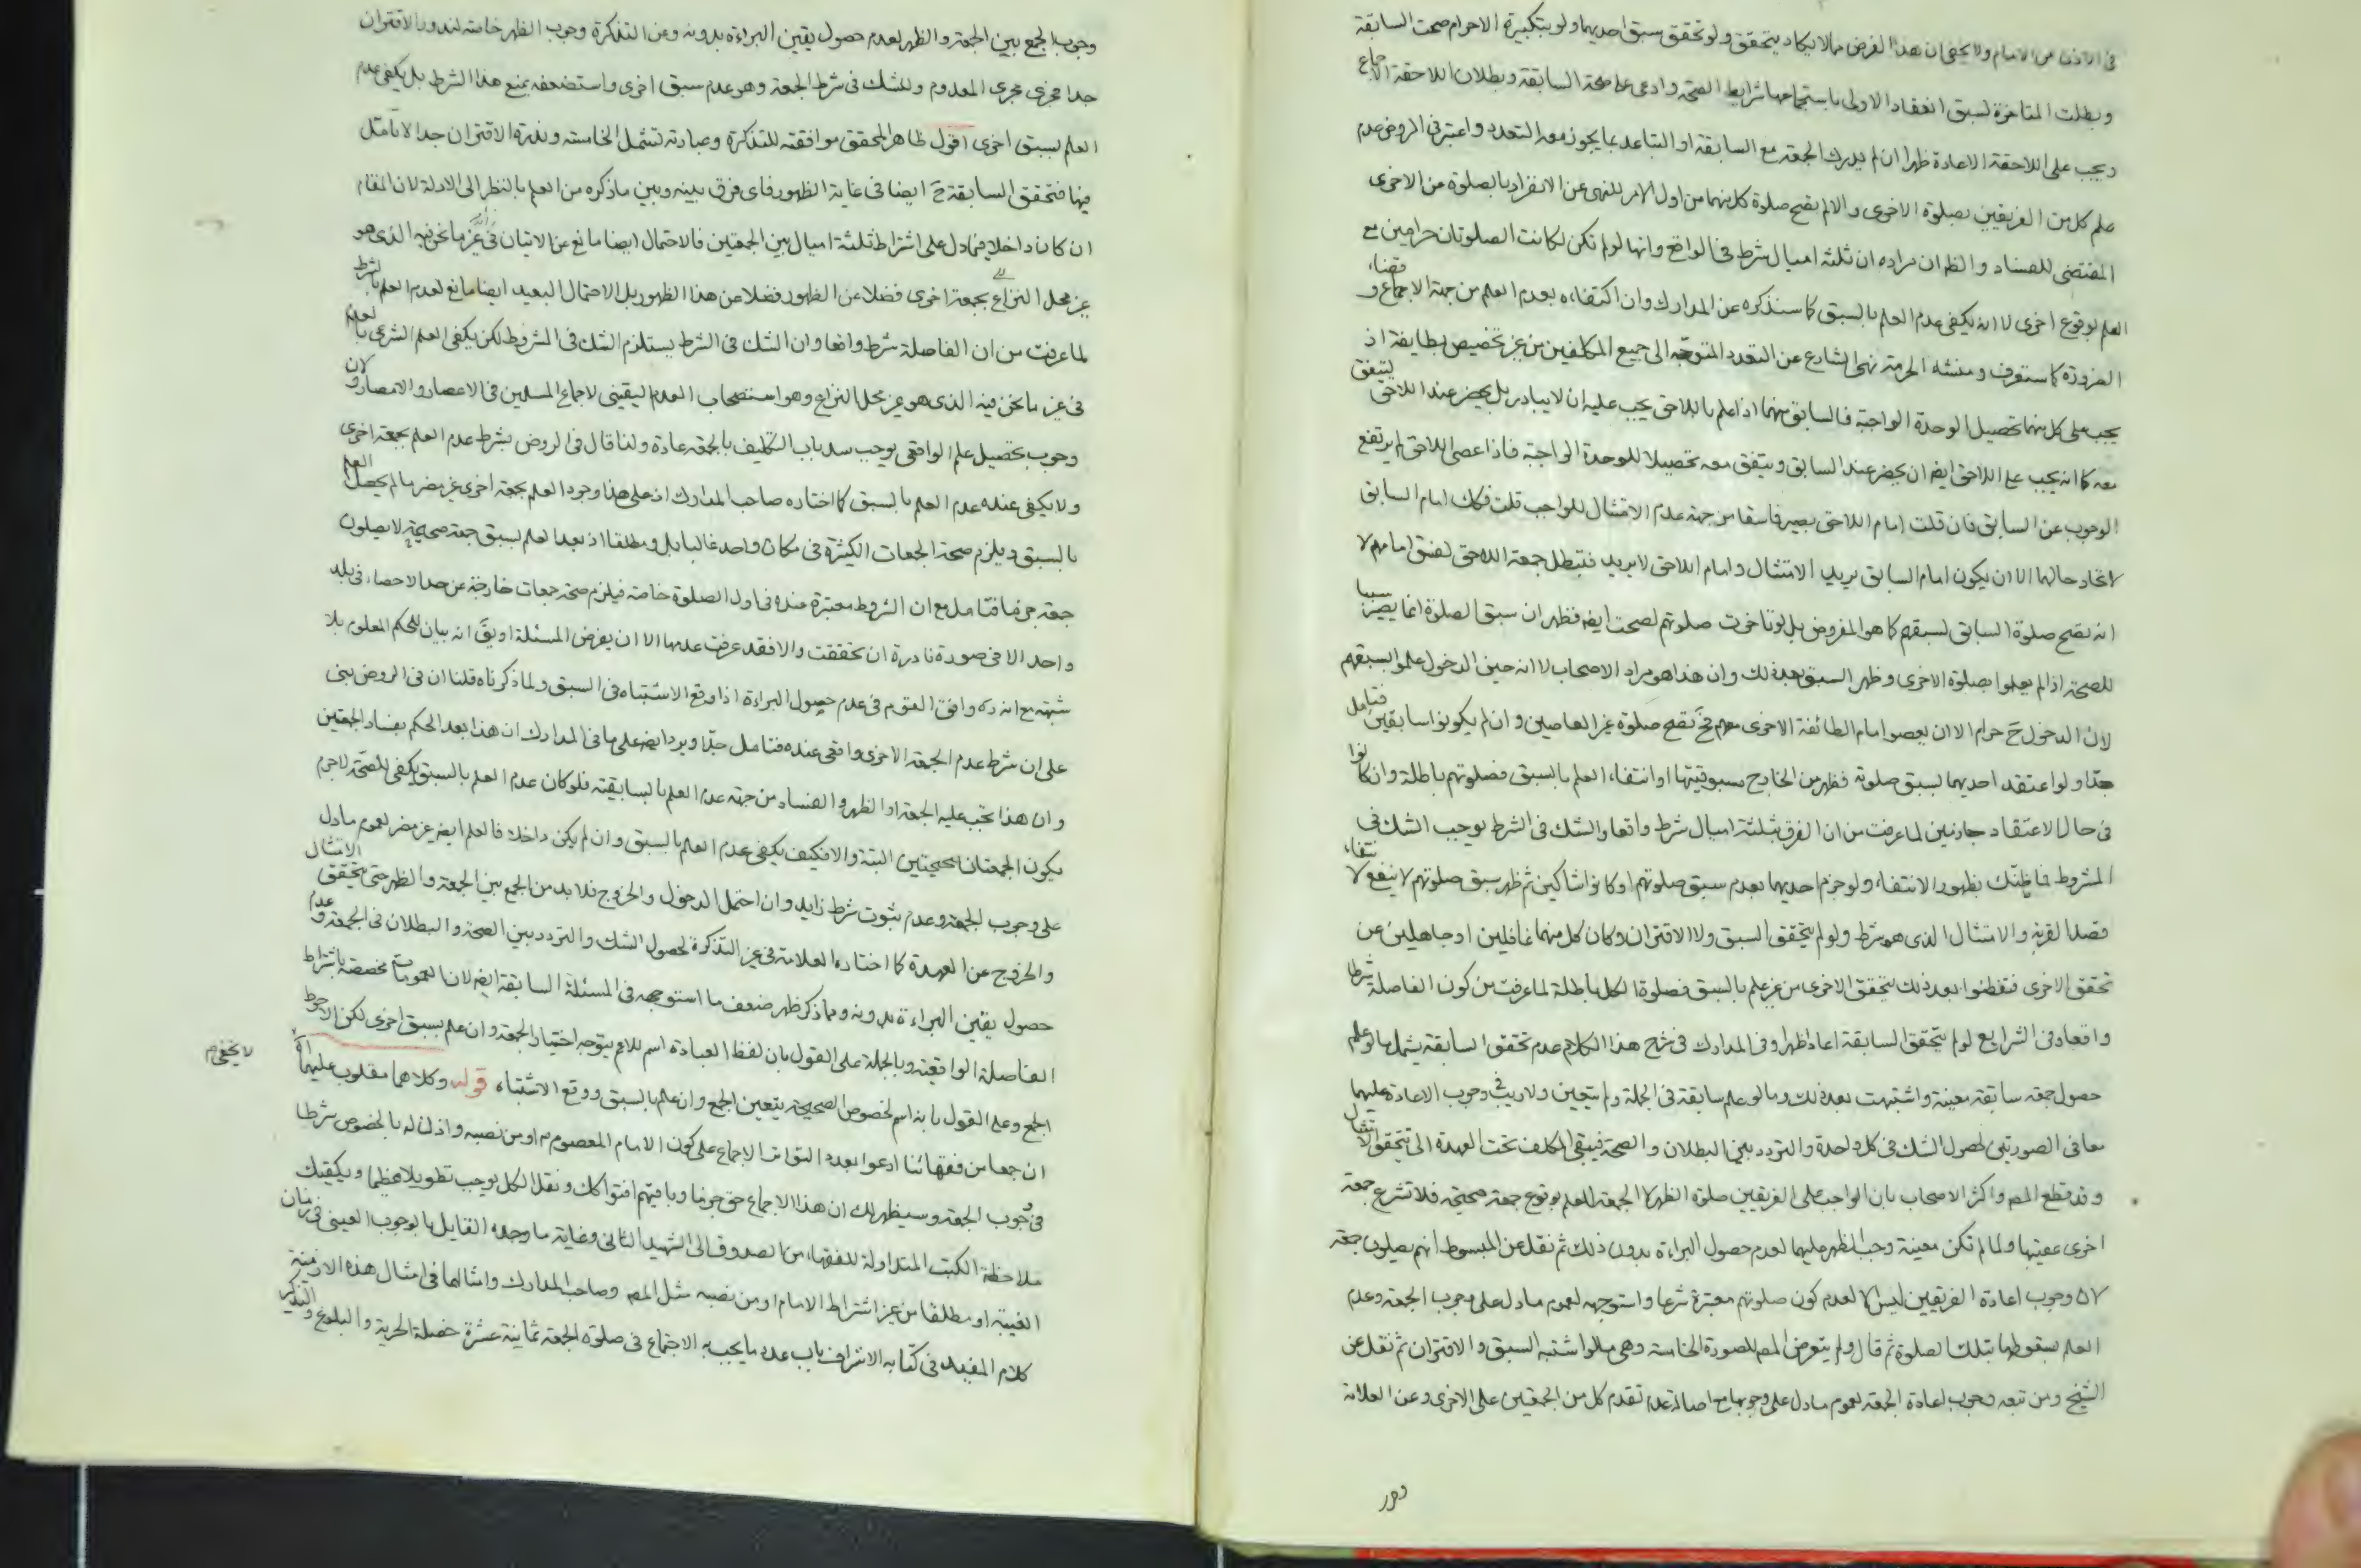 في الاذن من الامام ولا يخفى ان هذا الفرض مما لا يكاد يتحقق ولو تحقق سبق احديهما ولو بتكبيرة الاحرام صحت السابقة
وبطلت المتاخرة لسبق انعقاد الاولى باستجماعها شرايط الصحة وادعى على صحة السابقة وبطلان اللاحقة الاجماع
ويجب على اللاحقة الاعادة ظهرا ان لم يدرك الجمعة مع السابقة او التباعد بما يجوز معه التعدد واعتبر في الروض عدم
علم كل من الفريقين بصلوة الاخرى والا لم يصح صلوة كل منهما من اول الامر للنهي عن الانفراد بالصلوة من الاخرى
المقتضي للفساد والظ ان مراده ان ثلثة اميال شرط في الواقع وانها لو لم تكن لكانت الصلوتان حرامين مع
العلم بوقوع اخرى لا انه يكفي عدم العلم بالسبق كما سنذكره عن المدارك وان اكتفاءه بعدم العلم من جهة الاجماع وقضاء
الضرورة كما ستعرف ومنشأ الحرمة نهي الشارع عن التعدد المتوجه الى جميع المكلفين من غير تخصيص بطايفة اذ
يجب على كل منهما تحصيل الوحدة الواجبة فالسابق منهما اذا علم باللاحق يجب عليه ان لا يبادر بل يحضر عند اللاحق ليتفق
معه كما انه يجب على اللاحق ايض ان يحضر عند السابق ويتفق معه تحصيلا للوحدة الواجبة فاذا عصى اللاحق لم يرتفع
الوجوب عن السابق فان قلت امام اللاحق يصير فاسقا من جهة عدم الامتثال للواجب قلت فكك امام السابق
لاتحاد حالهما الا ان يكون امام السابق يريد الامتثال وامام اللاحق لا يريد فتبطل جمعة اللاحق لفسق امامهم لا
انه تصح صلوة السابق لسبقهم كما هو المفروض بل لو تاخرت صلوتهم لصحت ايض فظهر ان سبق الصلوة انما يصير سببا
للصحة اذا لم يعلموا بصلوة الاخرى وظهر السبق بعد ذلك وان هذا هو مراد الاصحاب لا انه حين الدخول علموا بسبقهم
لان الدخول ح حرام الا ان يعصوا امام الطائفة الاخرى معهم فح تصح صلوة غير العاصين وان لم يكونوا سابقين فتامل
جدا ولو اعتقد احديهما لسبق صلوته فظهر من الخارج مسبوقيتها او انتفاء العلم بالسبق فصلوتهم باطلة وان كانوا
في حال الاعتقاد جازمين لما عرفت من ان الفرق بثلثة اميال شرط واقعا والشك في الشرط يوجب الشك في
المشروط فما ظنك بظهور الانتفاء ولو جزم احديهما بعدم سبق صلوتهم او كانوا شاكين ثم ظهر سبق صلوتهم لا ينفع لانتفاء
قصد القربة والامتثال الذي هو شرط ولو لم يتحقق السبق ولا الاقتران وكان كل منهما غافلين او جاهلين عن
تحقق الاخرى فتفطنوا بعد ذلك بتحقق الاخرى من غير علم بالسبق فصلوة الكل باطلة لما عرفت من كون الفاصلة شرطا
واقعا وفي الشرايع لو لم يتحقق السابقة اعاد ظهرا وفي المدارك في شرح هذا الكلام عدم تحقق السابقة يشمل ما لو علم
حصول جمعة سابقة معينة واشتبهت بعد ذلك وما لو علم سابقة في الجملة ولم يتعين ولا ريب في وجوب الاعادة عليهما
معا في الصورتين لحصول الشك في كل واحدة والتردد بين البطلان والصحة فيبقى المكلف تحت العهدة الى تحقق الامتثال
وقد قطع المص واكثر الاصحاب بان الواجب على الفريقين صلوة الظهر لا الجمعة للعلم بوقوع جمعة صحيحة فلا تشرع جمعة
اخرى عقيبها ولما لم تكن معينة وجب الظهر عليهما لعدم حصول البراءة بدون ذلك ثم نقل عن المبسوط انهم يصلون جمعة
لان وجوب اعادة الفريقين ليس الا لعدم كون صلوتهم معتبرة شرعا واستوجهه لعموم ما دل على وجوب الجمعة وعدم
العلم بسقوطها بتلك الصلوة ثم قال ولم يتعرض المص للصورة الخامسة وهي ما لو اشتبه السبق والاقتران ثم نقل عن
الشيخ ومن تبعه وجوب اعادة الجمعة لعموم ما دل على وجوبها مع اصالة عدم تقدم كل من الجمعتين على الاخرى وعن العلامة
وجوب الجمع بين الجمعة والظهر لعدم حصول يقين البراءة بدونه وعن التذكرة وجوب الظهر خاصة لندور الاقتران
جدا فجرى مجرى المعدوم وللشك في شرط الجمعة وهو عدم سبق اخرى واستضعفه بمنع هذا الشرط بل يكفي عدم
العلم بسبق اخرى اقول ظاهر المحقق موافقته للتذكرة وعبارته تشمل الخامسة وندرة الاقتران جدا لا تامل
فيها فتحقق السابقة ح ايضا في غاية الظهور فاي فرق بينه وبين ما ذكره من العلم بالنظر الى الادلة لان المقام
ان كان داخلا فيما دل على اشتراط ثلثة اميال بين الجمعتين فالاحتمال ايضا مانع عن الاتيان في غير ما نحن فيه الذي هو
غير محل النزاع بجمعة اخرى فضلا عن الظهور فضلا عن هذا الظهور بل الاحتمال البعيد ايضا مانع لعدم العلم بالشرط
لما عرفت من ان الفاصلة شرط واقعا وان الشك في الشرط يستلزم الشك في المشروط لكن يكفي العلم الشرعي بالعدم
في غير ما نحن فيه الذي هو غير محل النزاع وهو استصحاب العدم اليقيني لاجماع المسلمين في الاعصار والامصار ولان
وجوب تحصيل علم الواقعي يوجب سد باب التكليف بالجمعة عادة ولذا قال في الروض بشرط عدم العلم بجمعة اخرى
ولا يكفي عنده عدم العلم بالسبق كما اختاره صاحب المدارك اذ على هذا وجود العلم بجمعة اخرى غير مضر ما لم يحصل العلم
بالسبق ويلزم صحة الجمعات الكثيرة في مكان واحد غالبا بل ومطلقا اذ بعد العلم بسبق جمعة صحيحة لا يصلون
جمعة جزما فتامل مع ان الشروط معتبرة عنده في اول الصلوة خاصة فيلزم صحة جمعات خارجة عن حد الاحصاء في بلد
واحد الا في صورة نادرة ان تحققت والا فقد عرفت عدمها الا ان يفرض المسئلة او يق انه بيان للحكم المعلوم بلا
شبهة مع انه ره وافق القوم في عدم حصول البراءة اذا وقع الاشتباه في السبق ولما ذكرناه قلنا ان في الروض بنى
على ان شرط عدم الجمعة الاخرى واقعي عنده فتامل جدا ويرد ايض على ما في المدارك ان هذا بعد الحكم بفساد الجمعتين
وان هذا يجب عليه الجمعة او الظهر والفساد من جهة عدم العلم بالسابقية فلو كان عدم العلم بالسبق يكفي للصحة لاجرم
يكون الجمعتان صحيحتين البتة والا فكيف يكفي عدم العلم بالسبق وان لم يكن داخلا فالعلم ايض غير مضر لعموم ما دل
على وجوب الجمعة وعدم ثبوت شرط زايد وان احتمل الدخول والخروج فلا بد من الجمع بين الجمعة والظهر حتى يتحقق الامتثال
والخروج عن العهدة كما اختاره العلامة في غير التذكرة لحصول الشك والتردد بين الصحة والبطلان في الجمعة وعدم
حصول يقين البراءة بدونه ومما ذكر ظهر ضعف ما استوجهه في المسئلة السابقة ايض لان العمومات مخصصة باشتراط
الفاصلة الواقعية وبالجملة على القول بان لفظ العبادة اسم للاعم يتوجه اختيار الجمعة وان علم بسبق اخرى لكن الاحوط
الجمع وعلى القول بانه اسم لخصوص الصحيحة يتعين الجمع وان علم بالسبق ووقع الاشتباه قوله وكلاهما مقلوب عليهما اه
لا يخفى
ان جمعا من فقهائنا ادعوا بعده التواتر الاجماع على كون الامام المعصوم ع او من نصبه واذن له بالخصوص شرطا
في وجوب الجمعة وسيظهر لك ان هذا الاجماع حق جزما وباقيهم افتوا كك ونقل الكل يوجب تطويلا عظيما ويكفيك
ملاحظة الكتب المتداولة للفقهاء من الصدوق الى الشهيد الثاني وغاية ما وجد القايل بالوجوب العيني في زمان
الغيبة او مطلقا من غير اشتراط الامام او من نصبه مثل المص وصاحب المدارك وامثالهما في امثال هذه الازمنة
كلام المفيد في كتابه الاشراف باب عدد ما يجب به الاجتماع في صلوة الجمعة ثمانية عشرة خصلة الحرية والبلوغ والتذكير